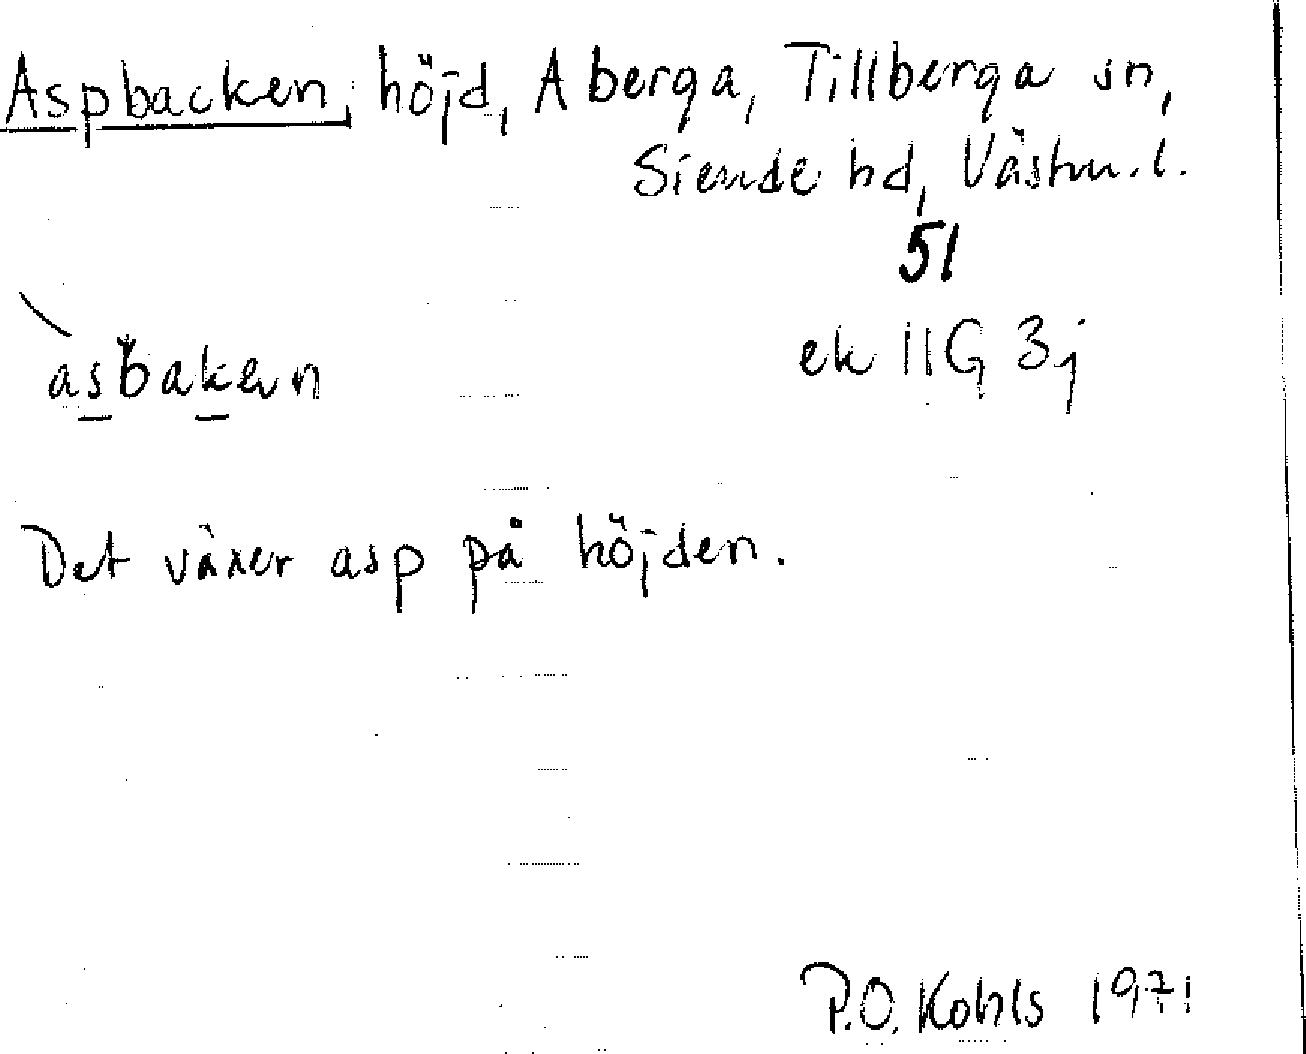 Aspbacken, höjd, Aberga, Tillberga sn,
Siende hd, Västm. l.
51
ek 11G 3j
Det växer asp på höjden.
P.O. Kohls 1971